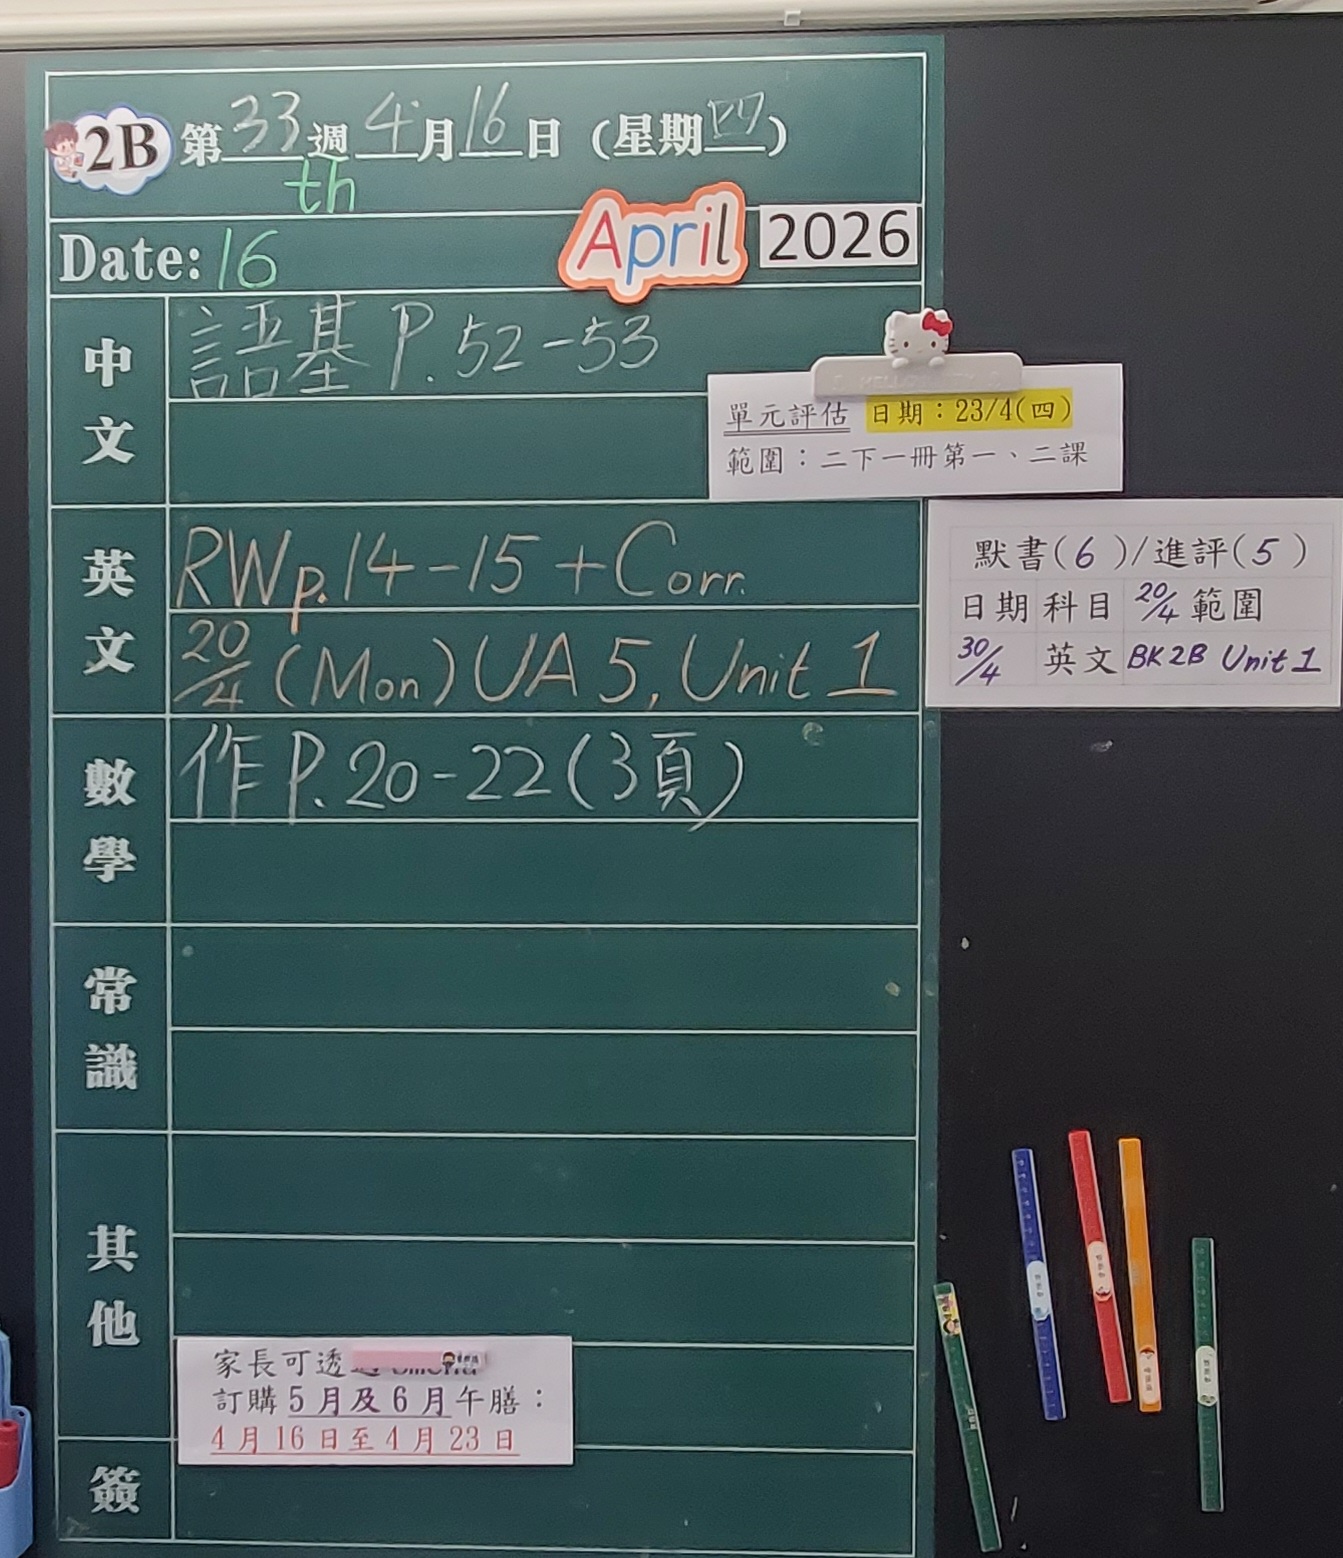 2B 第33週 4月16日（星期四）
th
Date: 16 April 2026
中文
語基 P. 52-53
單元評估 日期：23/4(四)
範圍：二下一冊第一、二課
英文
RWp.14-15 + Corr.
20/4 (Mon) UA 5, Unit 1
默書(6)/進評(5)
日期 科目 20/4 範圍
30/4 英文 BK2B Unit 1
數學
作 P. 20-22 (3頁)
常識
其他
家長可透
訂購 5月及6月午膳：
4月16日至4月23日
簽